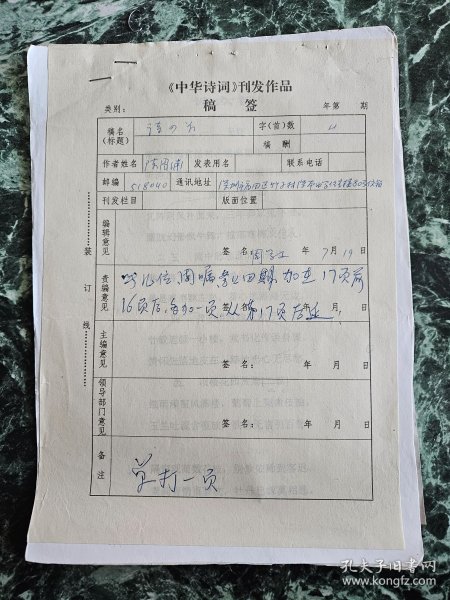 《中华诗词》刊发作品
稿 签
类别： 年第 期
稿名(标题) 诗四首 字(首)数 4
稿酬
作者姓名 发表用名 联系电话
邮编 518040 通讯地址 深圳市福田区竹子林
刊发栏目 版面位置
编辑意见
签名： 年 7 月 19 日
责编意见
此几位周嘱 加在17页前
16页后,各加一页,从第17页后延.
主编意见
签名： 年 月 日
领导部门意见
签名： 年 月 日
备注
单打一页
装订线
孔夫子旧书网
www.kongfz.com